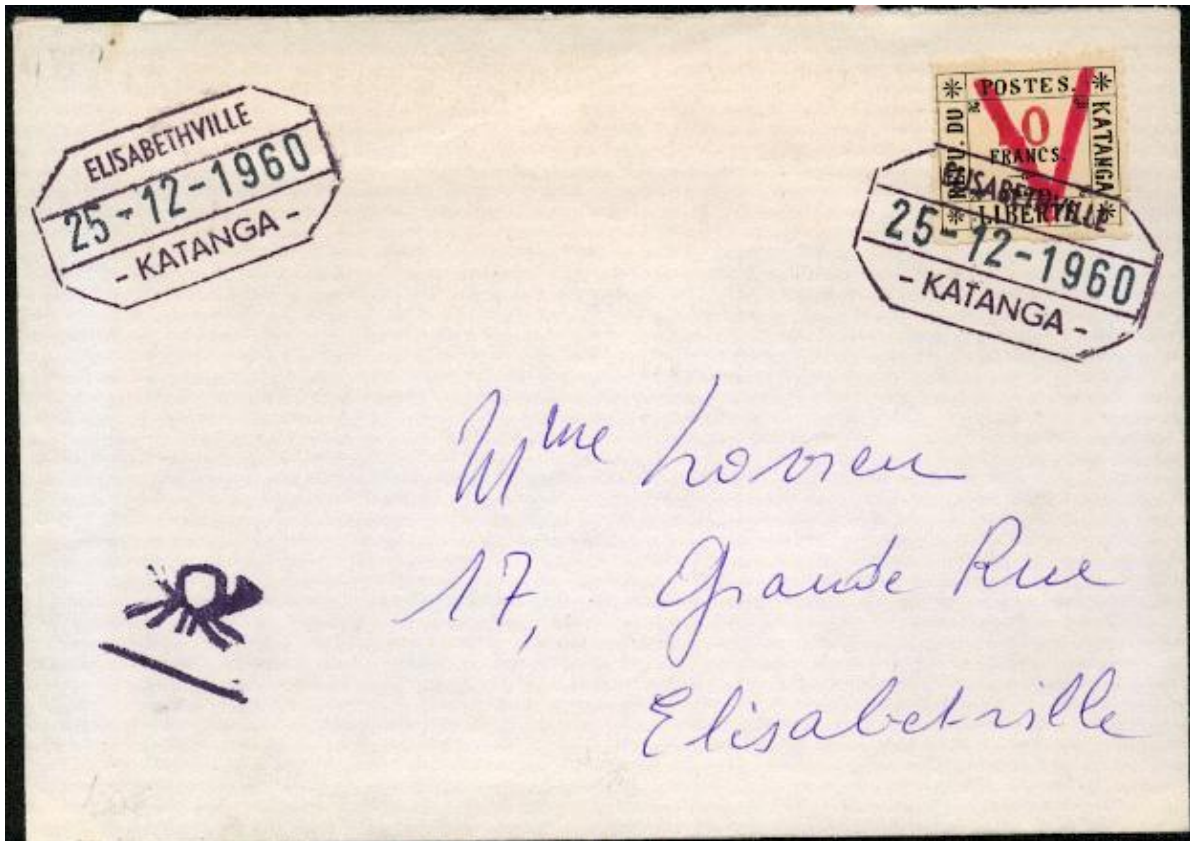 ELISABETHVILLE
25-12-1960
- KATANGA -
POSTES.
REPU. DU
KATANGA
0
FRANCS.
LIBERTE
ELISABETHVILLE
25-12-1960
- KATANGA -
Mme
17, Grande Rue
Elisabetville